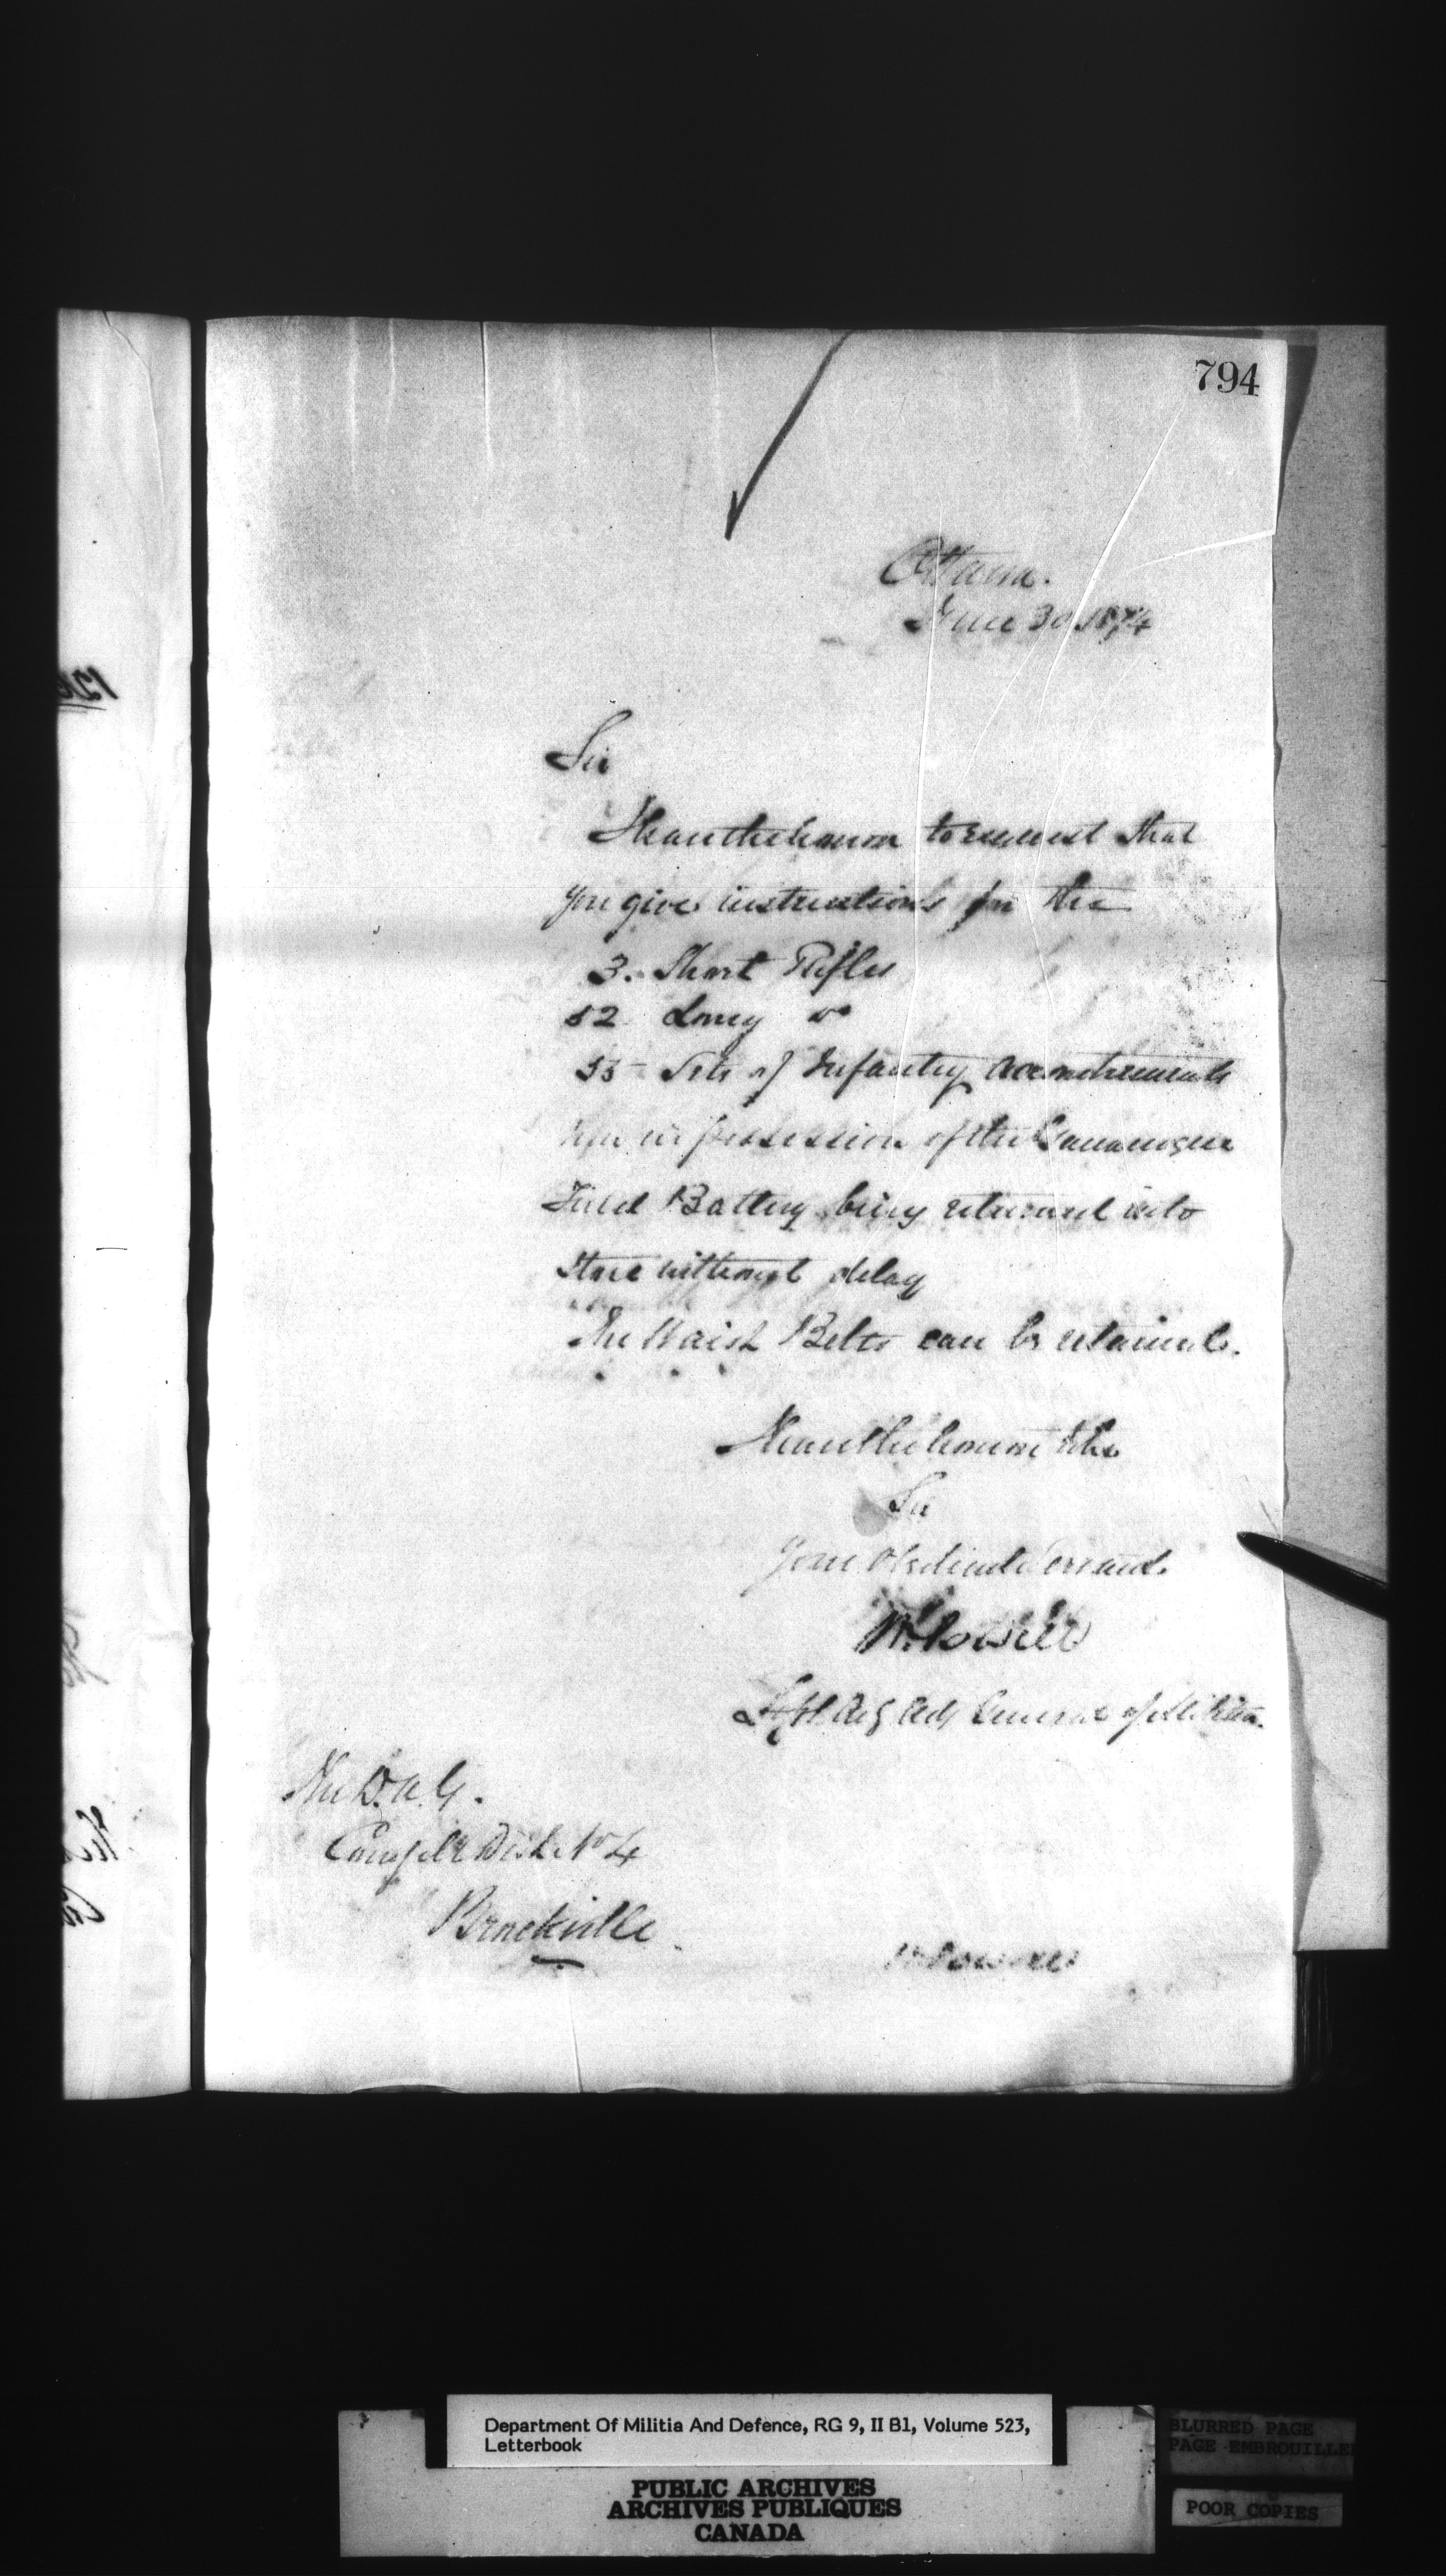 794
Ottawa.
June 30 1874
Sir
I have the honor to request that
you give instructions for the
3. Short Rifles
52 Long do
55 Sets of Infantry Accoutrements
now in possession of the Gananoque
Field Battery being returned into
Store without delay
The Waist Belts can be retained.
I have the honor to be
Sir
Your Obedient Servant
W. Powell
Adj General of Militia.
The D.A.G.
Comg Mil Dist No 4
Brockville
W Powell
Department Of Militia And Defence, RG 9, II B1, Volume 523,
Letterbook
PUBLIC ARCHIVES
ARCHIVES PUBLIQUES
CANADA
BLURRED PAGE
PAGE EMBROUILLEE
POOR COPIES